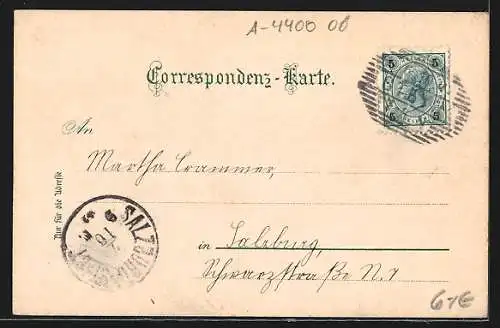 A-4400 06
Correspondenz-Karte.
5 5
5 5
An
Martha Crammer,
Nur für die Adresse
SALZBURG
in Salzburg
Schwarzstraße N. 7
6,-€